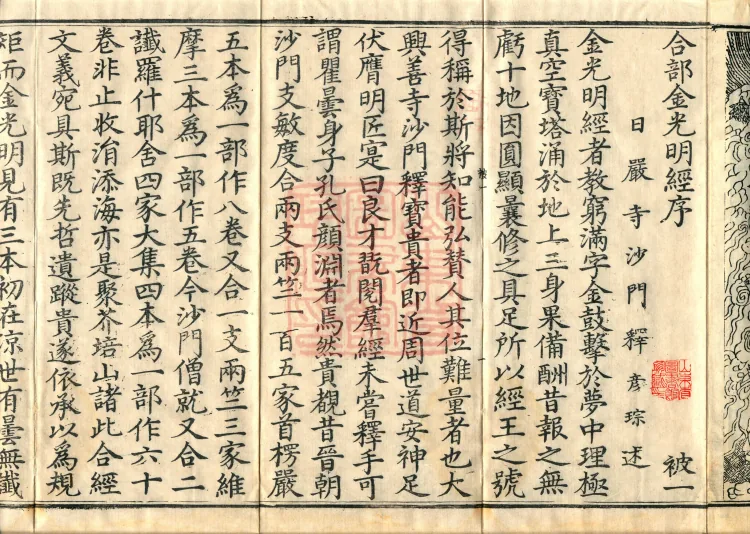 合部金光明經序　被一
日嚴寺沙門釋彦琮述
金光明經者教窮滿字金鼓擊於夢中理極
真空寶塔涌於地上三身果備酬昔報之無
虧十地因圓顯曩修之具足所以經王之號
得稱於斯將知能弘贊人其位難量者也大
興善寺沙門釋寶貴者即近周世道安神足
伏膺明匠寔曰良才旣閱羣經未嘗釋手可
謂瞿曇身子孔氏顔淵者焉然貴覩昔晉朝
沙門支敏度合兩支兩竺一百五家首楞嚴
五本爲一部作八卷又合一支兩竺三家維
摩三本爲一部作五卷今沙門僧就又合二
讖羅什耶舍四家大集四本爲一部作六十
卷非止收涓添海亦是聚芥培山諸此合經
文義宛具斯既先哲遺蹤貴遂依承以爲規
矩而金光明見有三本初在涼世有曇無讖